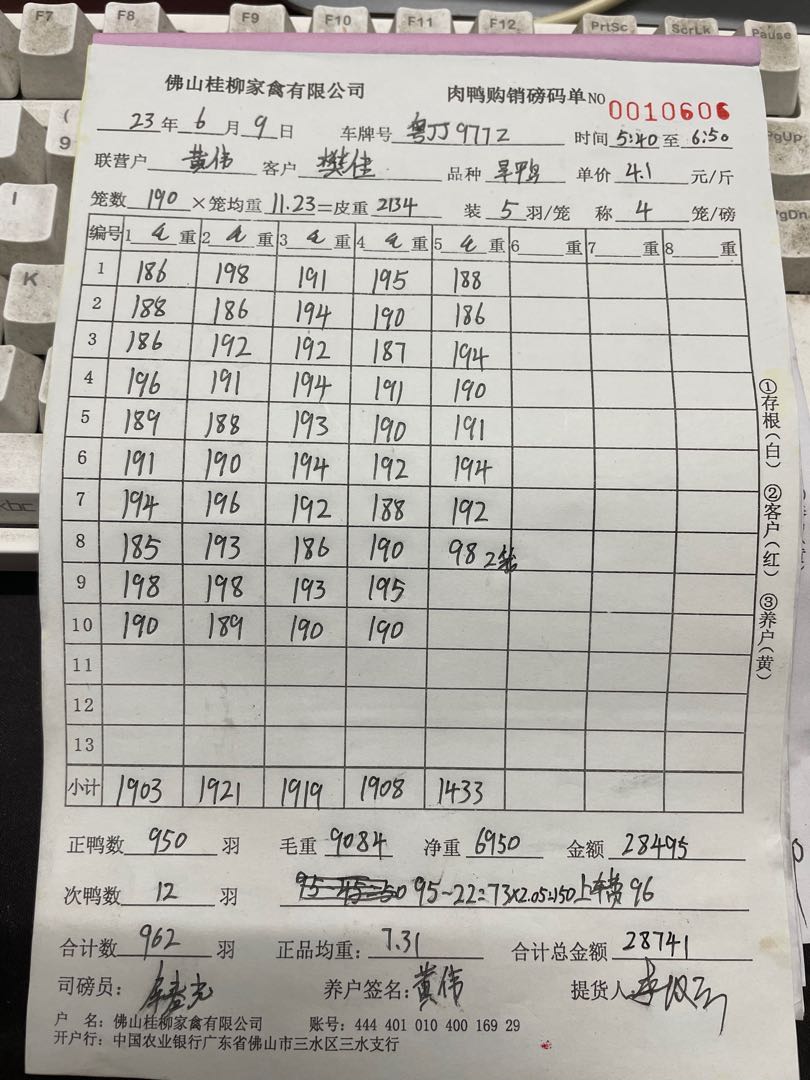 F7 F8 F9 F10 F11 F12 PrtSc ScrLk Pause
佛山桂柳家禽有限公司 肉鸭购销磅码单NO 0010606
23年6月9日 车牌号 粤JJ9772 时间5:40至6:50
联营户 黄伟 客户 樊佳 品种 旱鸭 单价 4.1 元/斤
笼数 190 ×笼均重 11.23=皮重 2134 装 5 羽/笼 称 4 笼/磅
编号 1 毛 重 2 毛 重 3 毛 重 4 毛 重 5 毛 重 6 重 7 重 8 重
1 186 198 191 195 188
2 188 186 194 190 186
3 186 192 192 187 194
4 196 191 194 191 190
5 189 188 193 190 191
6 191 190 194 192 194
7 194 196 192 188 192
8 185 193 186 190 98 2笼
9 198 198 193 195
10 190 189 190 190
11
12
13
小计 1903 1921 1919 1908 1433
①存根(白) ②客户(红) ③养户(黄)
正鸭数 950 羽 毛重 9084 净重 6950 金额 28495
次鸭数 12 羽 95-22=73×2.05=150上车费96
合计数 962 羽 正品均重: 7.31 合计总金额 28741
司磅员: 养户签名: 黄伟 提货人
户 名: 佛山桂柳家禽有限公司 账号: 444 401 010 400 169 29
开户行: 中国农业银行广东省佛山市三水区三水支行